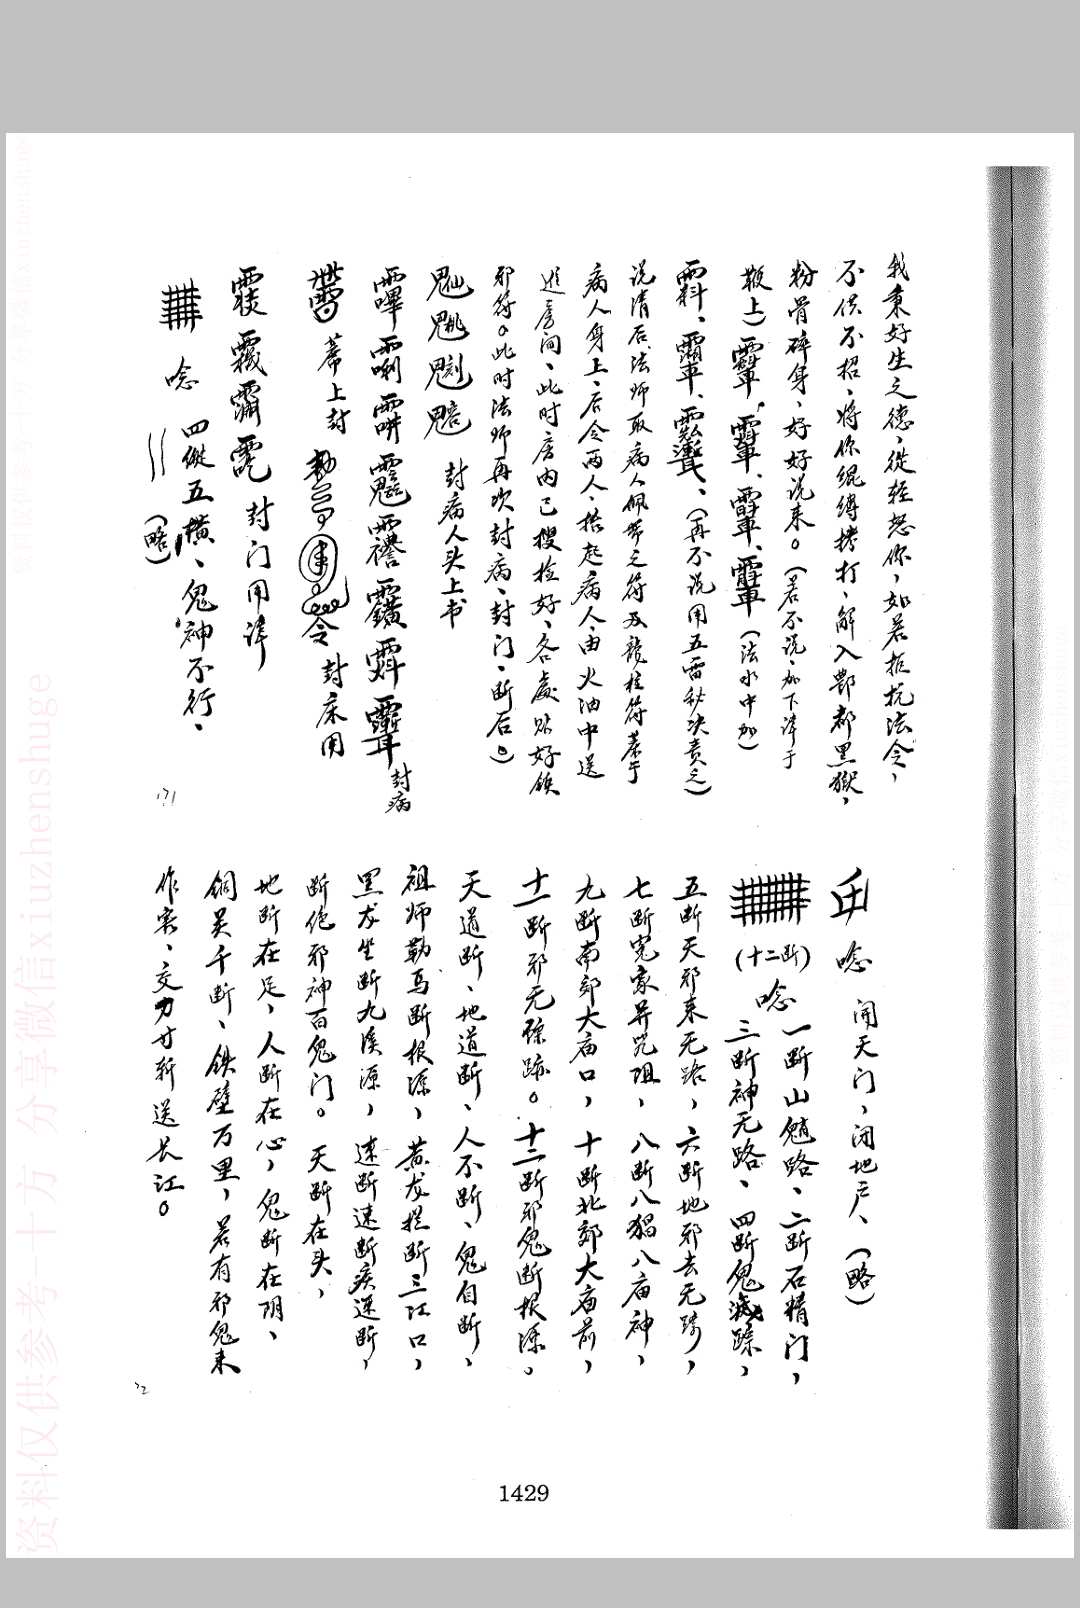 我秉好生之德、從轻恕你，如若拒抗法令，
不供不招、将你绲缚拷打、解入酆都黑獄，
粉骨碎身、好好说来。（若不说、加下讳于
鞭上）（法水中加）
（再不说用五雷秘决责之）
说清后、法师取病人佩带之符及龍柱符于
病人身上、后令两人、抬起病人、由火油中送
進房间、此时房内已搜检好、各處贴好铁
邪符。此时法师再次封病、封门、断后。）
封病人头上书
封病
蓆上封 勅 令 封床用
封门用讳
唸 四縱五横、鬼神不行、
（略）
唸 開天门，闭地户、（略）
（十二断）
唸 一断山魈路、二断石精门，
三断神无路、四断鬼滅踪，
五断天邪来无路，六断地邪去无踪，
七断冤家并咒咀，八断八猖八庙神，
九断南郊大庙口，十断北郊大庙前，
十一断邪无踪跡。十二断邪鬼断根源。
天道断、地道断、人不断、鬼自断、
祖师勒马断根源、黄龙拦断三江口，
黑龙坐断九溪源，速断速断疾速断，
断绝邪神百鬼门。天断在头，
地断在足，人断在心，鬼断在阴、
銅叉千断、铁壁万里，若有邪鬼来
作害、交刀寸斩送长江。
1429
资料仅供参考 十方 分享微信xiuzhenshuge